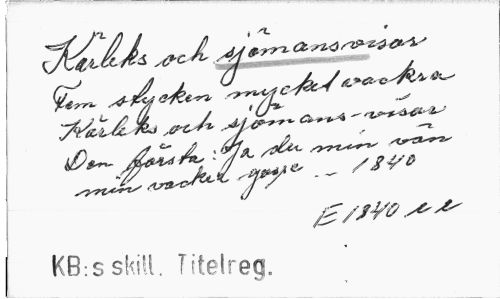 Kärleks och sjömansvisor
Fem stycken mycket vackra
Kärleks och sjömans-visor
Den första: Ja du min vän
min vacker gosse .. 1840
E 1840 e e
KB:s skill. Titelreg.